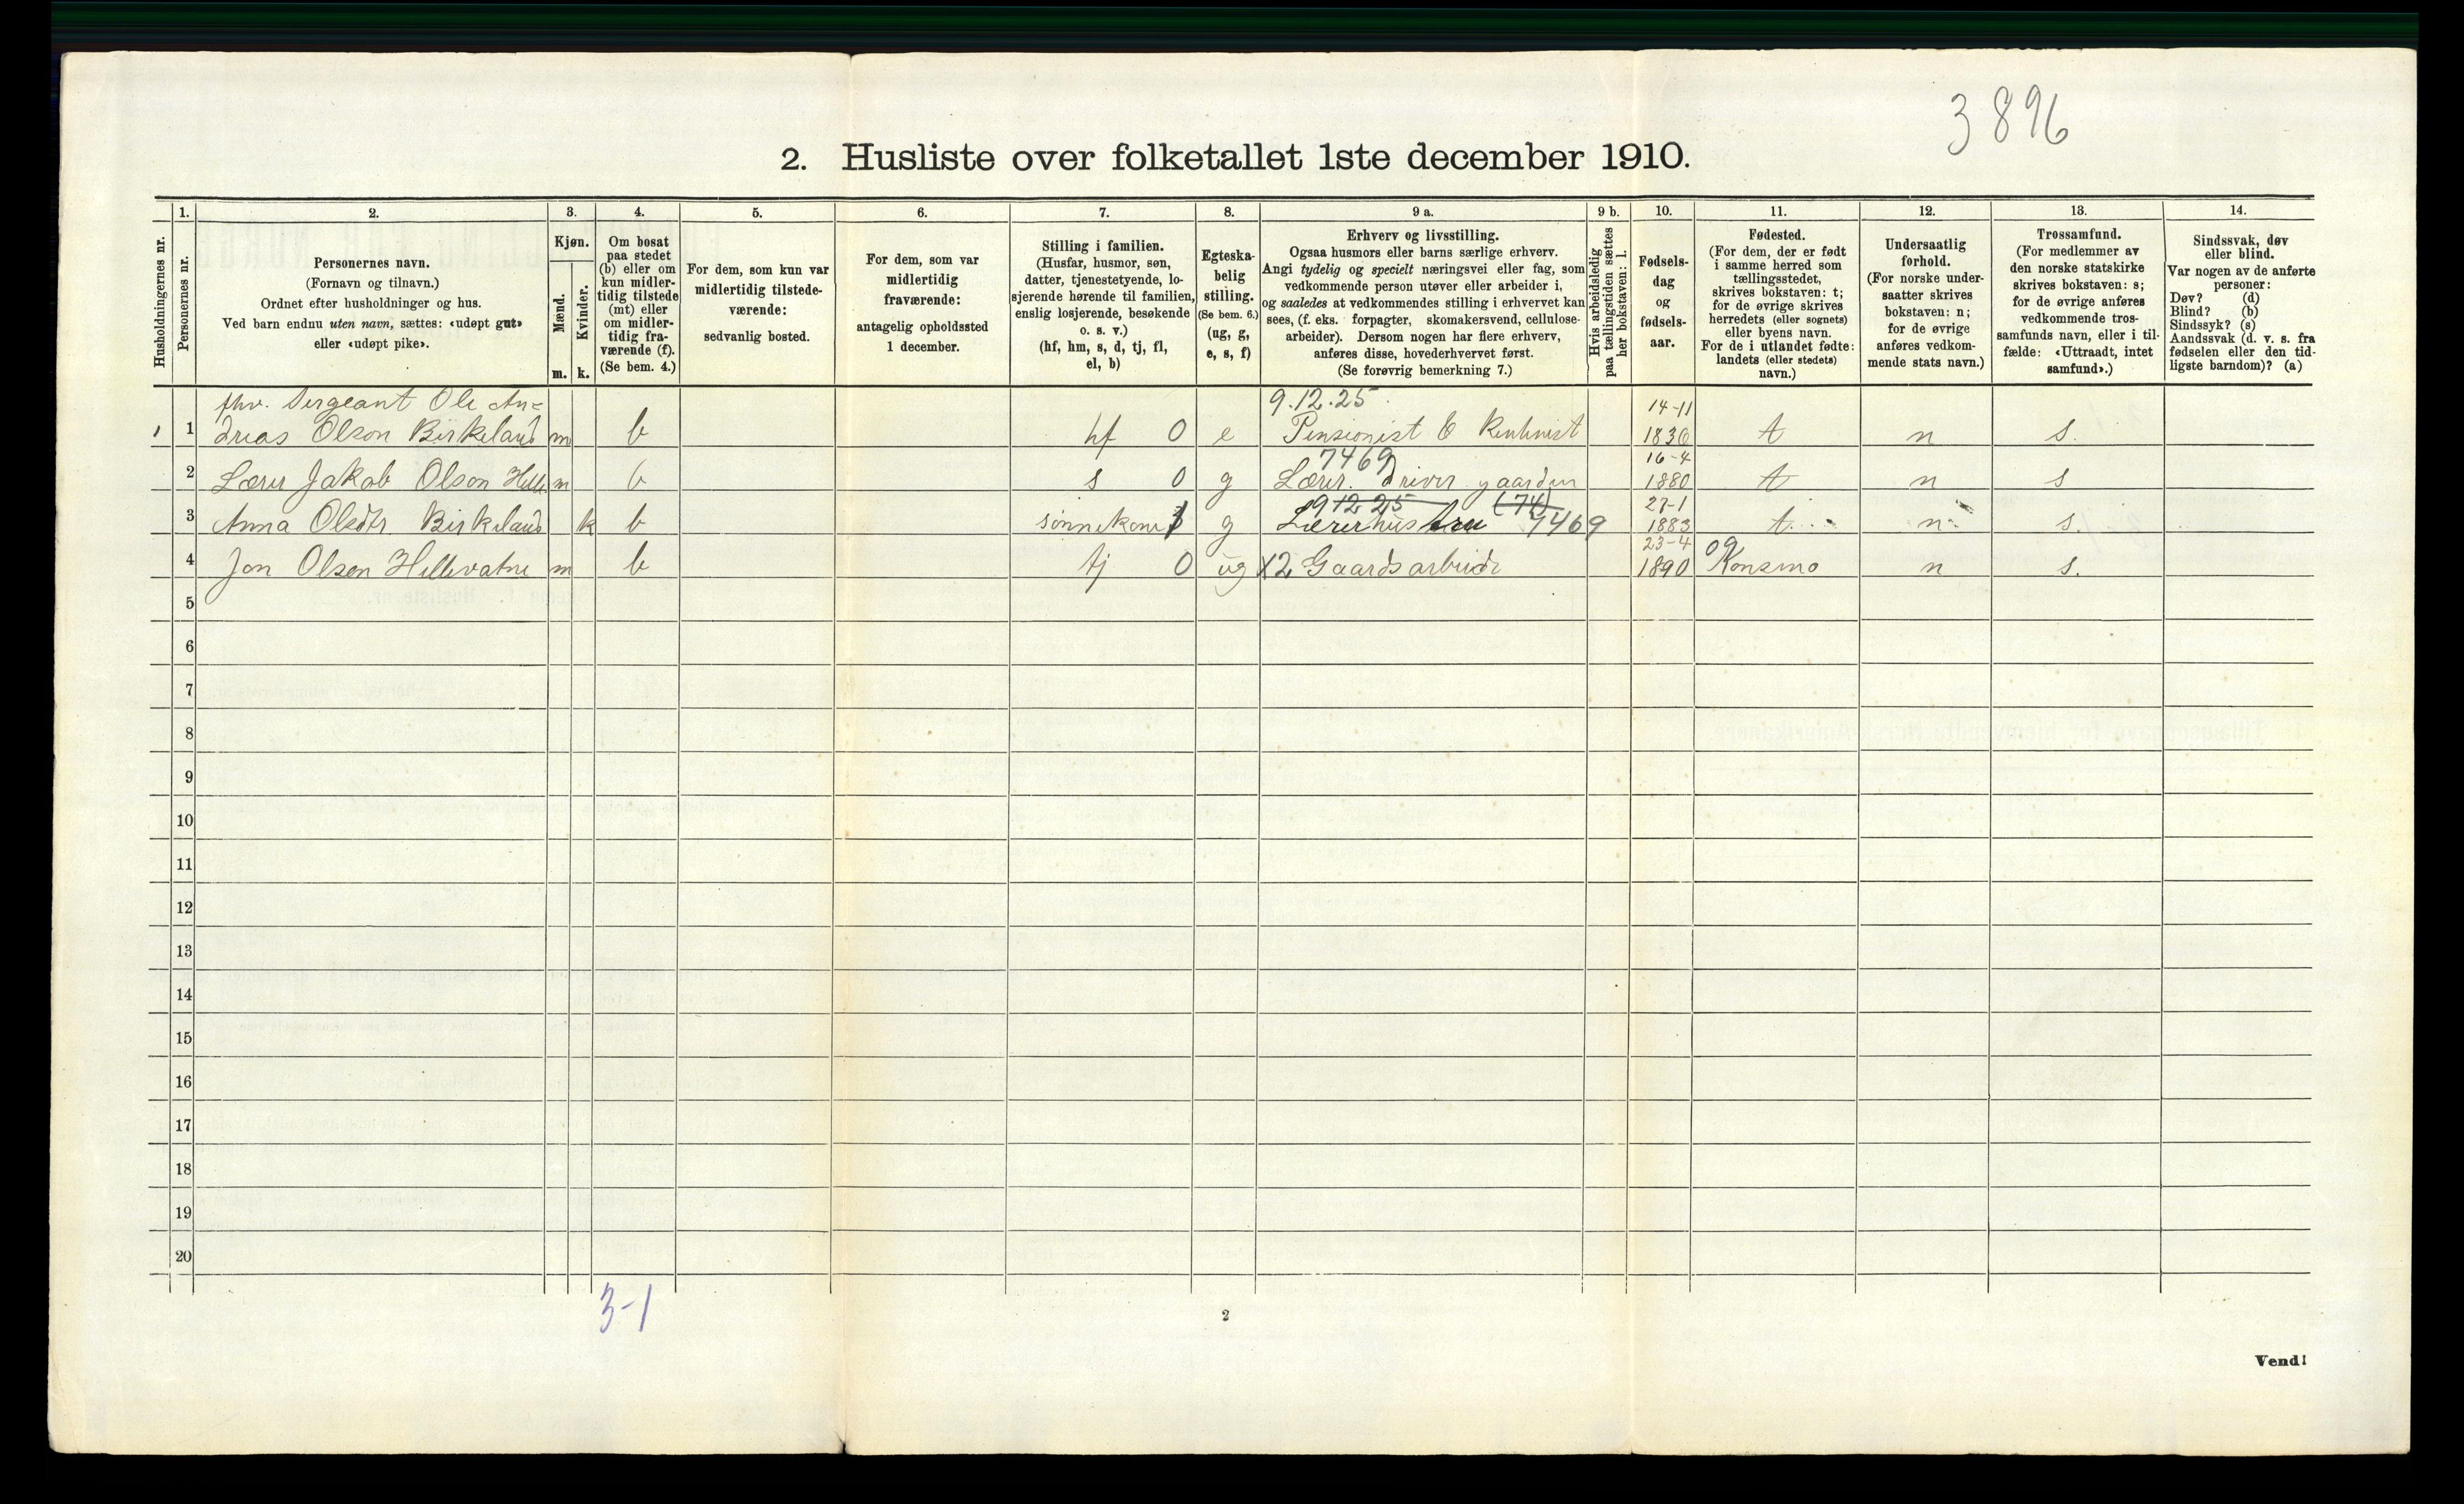 3896
2. Husliste over folketallet 1ste december 1910.
Husholdningernes nr.
1.
Personernes nr.
2.
Personernes navn.
(Fornavn og tilnavn.)
Ordnet efter husholdninger og hus.
Ved barn endnu uten navn, sættes: «udøpt gut»
eller «udøpt pike».
3.
Kjøn.
Mænd.
Kvinder.
m. k.
4.
Om bosat
paa stedet
(b) eller om
kun midler-
tidig tilstede
(mt) eller
om midler-
tidig fra-
værende (f).
(Se bem. 4.)
5.
For dem, som kun var
midlertidig tilstede-
værende:
sedvanlig bosted.
6.
For dem, som var
midlertidig
fraværende:
antagelig opholdssted
1 december.
7.
Stilling i familien.
(Husfar, husmor, søn,
datter, tjenestetyende, lo-
sjerende hørende til familien,
enslig losjerende, besøkende
o. s. v.)
(hf, hm, s, d, tj, fl,
el, b)
8.
Egteska-
belig
stilling.
(Se bem. 6.)
(ug, g,
e, s, f)
9 a.
Erhverv og livsstilling.
Ogsaa husmors eller barns særlige erhverv.
Angi tydelig og specielt næringsvei eller fag, som
vedkommende person utøver eller arbeider i,
og saaledes at vedkommendes stilling i erhvervet kan
sees, (f. eks. forpagter, skomakersvend, cellulose-
arbeider). Dersom nogen har flere erhverv,
anføres disse, hovederhvervet først.
(Se forøvrig bemerkning 7.)
9 b.
Hvis arbeidsledig
paa tællingstiden sættes
her bokstaven: l.
10.
Fødsels-
dag
og
fødsels-
aar.
11.
Fødested.
(For dem, der er født
i samme herred som
tællingsstedet,
skrives bokstaven: t;
for de øvrige skrives
herredets (eller sognets)
eller byens navn.
For de i utlandet fødte:
landets (eller stedets)
navn.)
12.
Undersaatlig
forhold.
(For norske under-
saatter skrives
bokstaven: n;
for de øvrige
anføres vedkom-
mende stats navn.)
13.
Trossamfund.
(For medlemmer av
den norske statskirke
skrives bokstaven: s;
for de øvrige anføres
vedkommende tros-
samfunds navn, eller i til-
fælde: «Uttraadt, intet
samfund».)
14.
Sindssvak, døv
eller blind.
Var nogen av de anførte
personer:
Døv? (d)
Blind? (b)
Sindssyk? (s)
Aandssvak (d. v. s. fra
fødselen eller den tid-
ligste barndom)? (a)
fhv. Sergeant Ole An=
9.12.25
14-11
1 1 dreas Olson Birkeland m b hf 0 e Pensionist 1836 t n s.
7469
16-4
2 Lærer Jakob Olson m b s 0 g Lærer. Driver gaarden 1880 t n s
9 12 25 (74)
27-1
3 Anna Olsdtr Birkeland k b sønnekone g Lærerhustru 7469 1883 t n s.
23-4
09
4 Jon Olsen Hillevatne m b tj 0 ug X2 Gaardsarbeide 1890 Konsmo n s.
5
6
7
8
9
10
11
12
13
14
15
16
17
18
19
20
3-1
2
Vend!